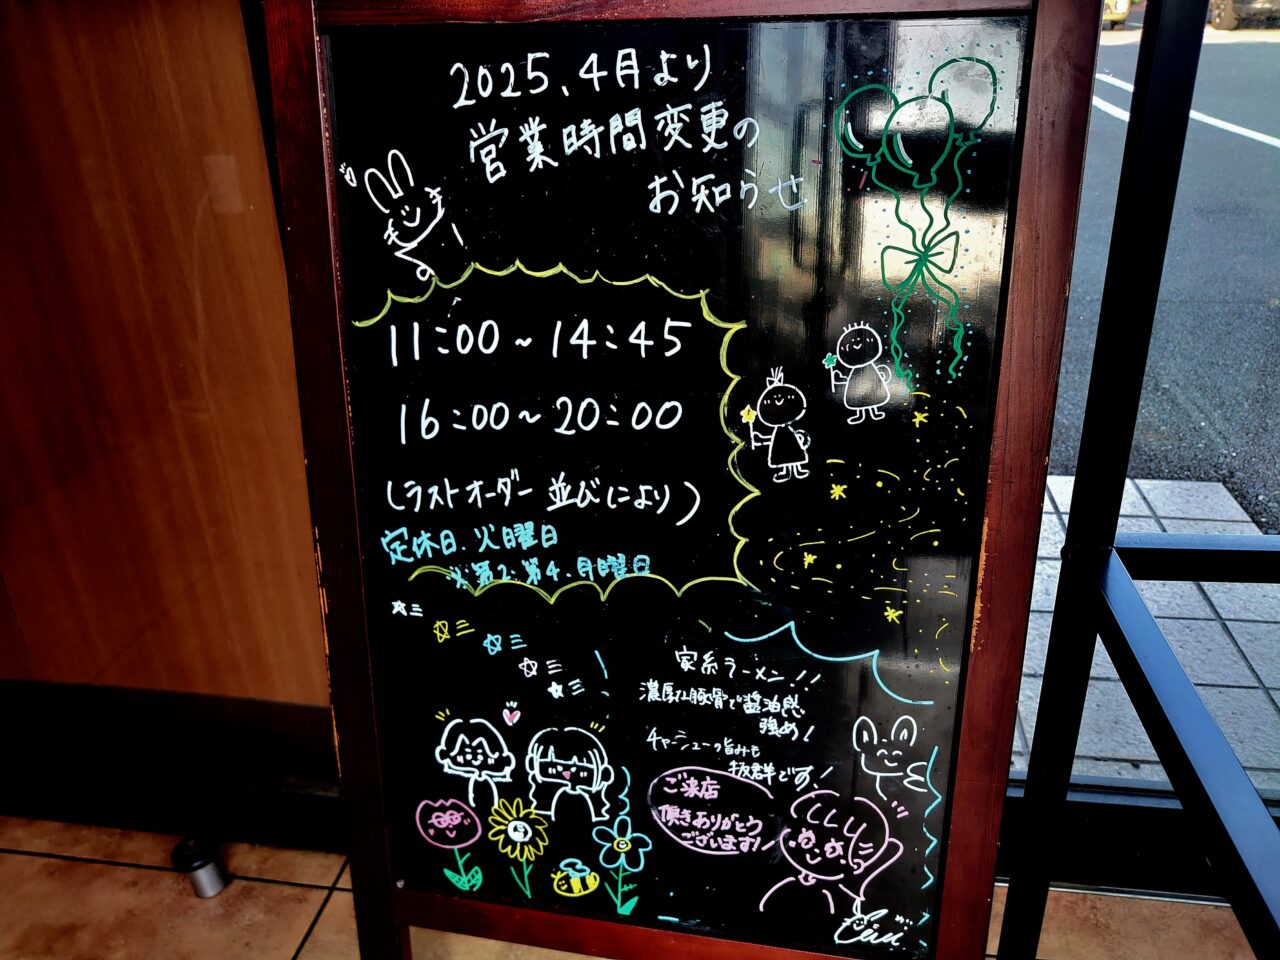 2025.4月より
営業時間変更の
お知らせ
11:00~14:45
16:00~20:00
(ラストオーダー 並びにより)
定休日.火曜日
※第2.第4.月曜日
家系ラーメン!!
濃厚な豚骨で醤油感
強め!
チャーシューの旨みも
抜群です!
ご来店
頂きありがとう
ございます!